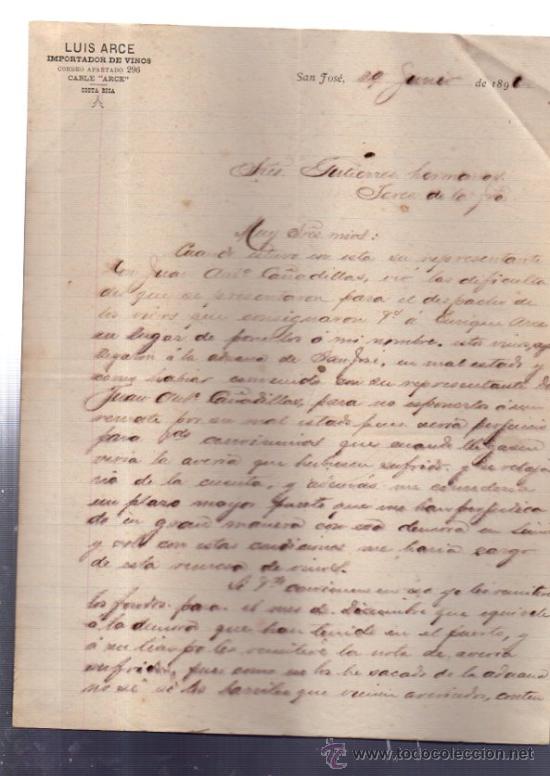 LUIS ARCE
IMPORTADOR DE VINOS
CORREO APARTADO 296
CABLE "ARCE"
COSTA RICA
San José, 29 Junio de 189
Sres. Gutierres hermanos.
Jerez de la Fra
Muy Sres mios:
Cuando estuvo en esta su representante
Don Juan Anto. Cañadillas, vió las dificulta
des que se presentaron para el despacho de
los vinos que consignaron Vds á Enrique Arce
en lugar de ponerlos á mi nombre. estos vinos
llegaron á la aduana de San José, en mal estado y
como habia convenido con su representante Dn
Juan Anto. Cañadillas, para no exponerlos á un
remate por su mal estado pues seria perjuicio
para Vds convinimos que cuando llegasen
veria la averia que hubiesen sufrido y se rebaja
ria de la cuenta, y además me concederia
un plazo mayor puesto que me han perjudica
do en gran manera con esa demora
y solo con estas condiciones me haria cargo
de esta remesa de vinos.
Si Vds convienen en eso yo les remitiré
los fondos para el mes de diciembre que equivale
á la demora que han tenido en el puerto, y
á les remitiré la nota de averia
sufrida, pues como no los he sacado de la aduana
no sé si los barriles que vienen averiados, conten
todocoleccion
www.todocoleccion.net